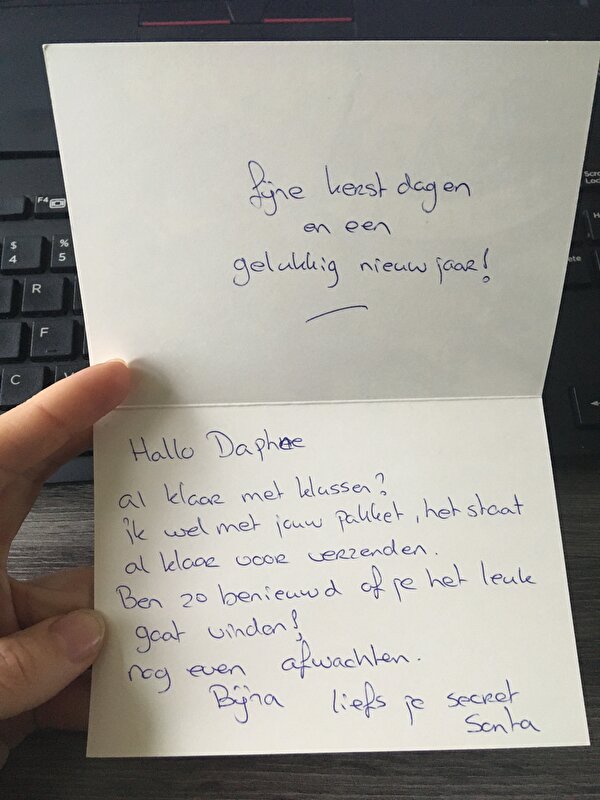 fijne kerst dagen
en een
gelukkig nieuwjaar!
Hallo Daphne
al klaar met klussen?
ik wel met jouw pakket, het staat
al klaar voor verzenden.
Ben zo benieuwd of je het leuk
gaat vinden!
nog even afwachten.
Bijna liefs je secret
Santa
F4
$
4
%
5
R
F
C